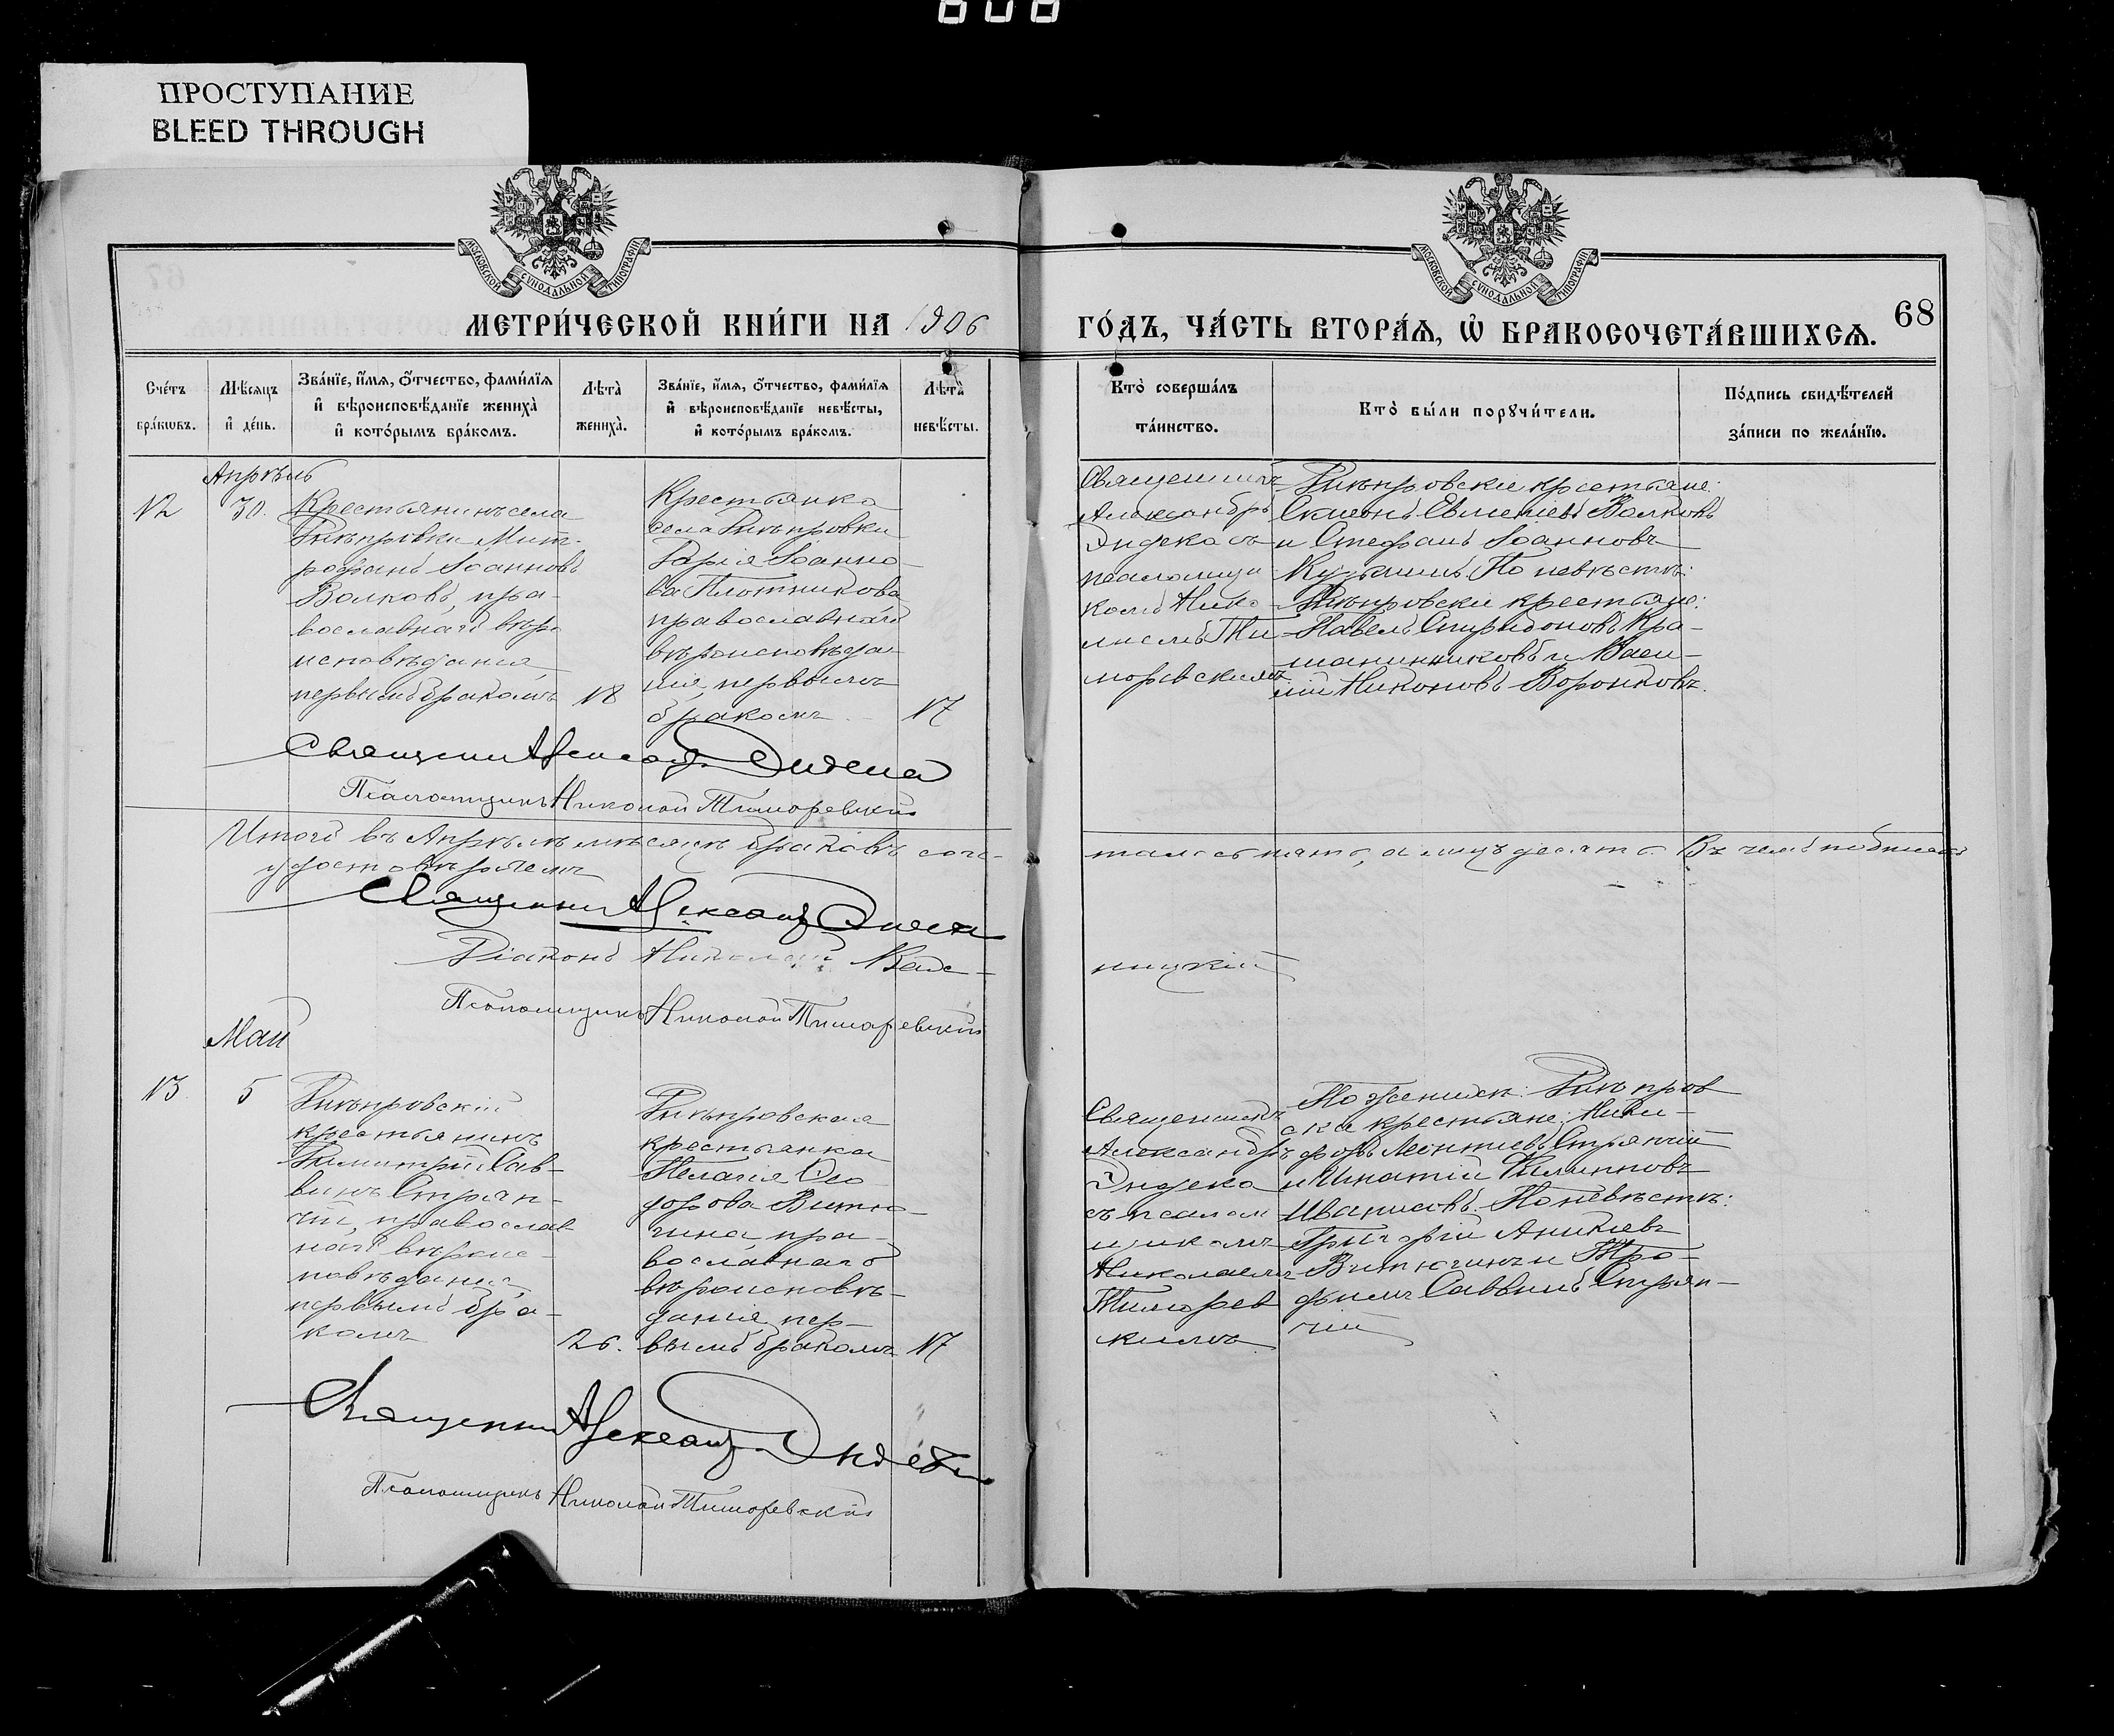 808
ПРОСТУПАНИЕ
BLEED THROUGH
МОСКОВСКОЙ СѴНОДАЛЬНОЙ ТИПОГРАФІИ
МОСКОВСКОЙ СѴНОДАЛЬНОЙ ТИПОГРАФІИ
МЕТРИ́ЧЕСКОЙ КНИ́ГИ НА 1906
ГО́ДЪ, ЧА́СТЬ ВТОРА́Я, Ѡ҆ БРАКОСОЧЕТА́ВШИХСѦ.
68
Сче́тъ
бра́кѡвъ.
Мѣ́сяцъ
и҆ де́нь.
Зва́нїе, и҆́мѧ, ѻ҆́тчество, фами́лїѧ
и҆ вѣроисповѣ́данїе жениха̀
и҆ кото́рымъ бра́комъ.
Лѣ̑та̀
жениха̀.
Зва́нїе, и҆́мѧ, ѻ҆́тчество, фами́лїѧ
и҆ вѣроисповѣ́данїе невѣ́сты,
и҆ кото́рымъ бра́комъ.
Лѣ̑та̀
невѣ́сты.
Кто̀ соверша́лъ
та́инство.
Кто̀ бы́ли порꙋчи́тели.
По́дпись свидѣ́телей
за́писи по жела́нїю.
Апрѣль
12
30.
Крестьянинъ села
Днѣпровки Мит-
рофанъ Іоанновъ
Волковъ, пра-
вославнаго вѣро
исповѣданія
первымъ бракомъ
18
Крестьянка
села Днѣпровки
Дарія Іоанно-
ва Плотникова
православнаго
вѣроисповѣда-
нія, первымъ
бракомъ
17
Священникъ
Александръ
Эндека съ
псаломщи
комъ Нико-
лаемъ Ти
моревскимъ
Днѣпровски крестьяне:
Симеонъ Евменіевъ Волковъ
и Стефанъ Іоанновъ
Кузьминъ. По невѣстѣ:
Днѣпровски крестьяне:
Павелъ Спиридоновъ Кра-
и Васи-
лій Никоновъ Воронковъ.
Священникъ Александръ Эндека
Псаломщикъ Николай Тиморевскій
Итого въ Апрѣлѣ мѣсяцѣ браковъ соче-
талось пять, а лицъ десять. Въ чемъ подписомъ
удостовѣряемъ
Священникъ Александръ Эндека
Діаконъ Николай
ницкій
Псаломщикъ Николай Тиморевскій
Май
13
5
Днѣпровскій
крестьянинъ
Димитрій Сав-
винъ Стряп-
чій, православ
наго вѣроис-
повѣданія,
первымъ бра-
комъ
26.
Днѣпровская
крестьянка
Пелагія Ѳео-
дорова Витю-
гина пра-
вославнаго
вѣроисповѣ-
данія, пер-
вымъ бракомъ
17
Священникъ
Александръ
Эндека
съ псалом
щикомъ
Николаемъ
Тиморев
скимъ
По женихѣ: Днѣпров
ски крестьяне: Ники-
форъ Леонтіевъ Стряпчій
и Игнатій Филипповъ
Иванисовъ. По невѣстѣ:
Григорій Аникіевъ
Витюгинъ и Тро-
фимъ Саввинъ Стряп-
чій
Священникъ Александръ Эндека
Псаломщикъ Николай Тиморевскій